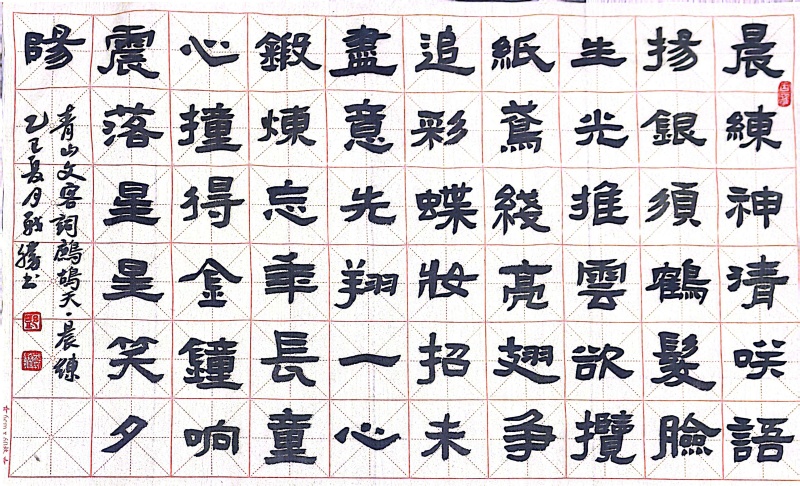 晨練神清咲語
揚銀須鶴髮臉
生光推雲欲攬
紙鳶綫亮翅争
追彩蝶妝招未
盡意先翔一心
鍛煉忘年長童
心撞得金鐘响
震落星星笑夕
陽
青山文客詞鷓鴣天·晨練
乙巳夏月勝书